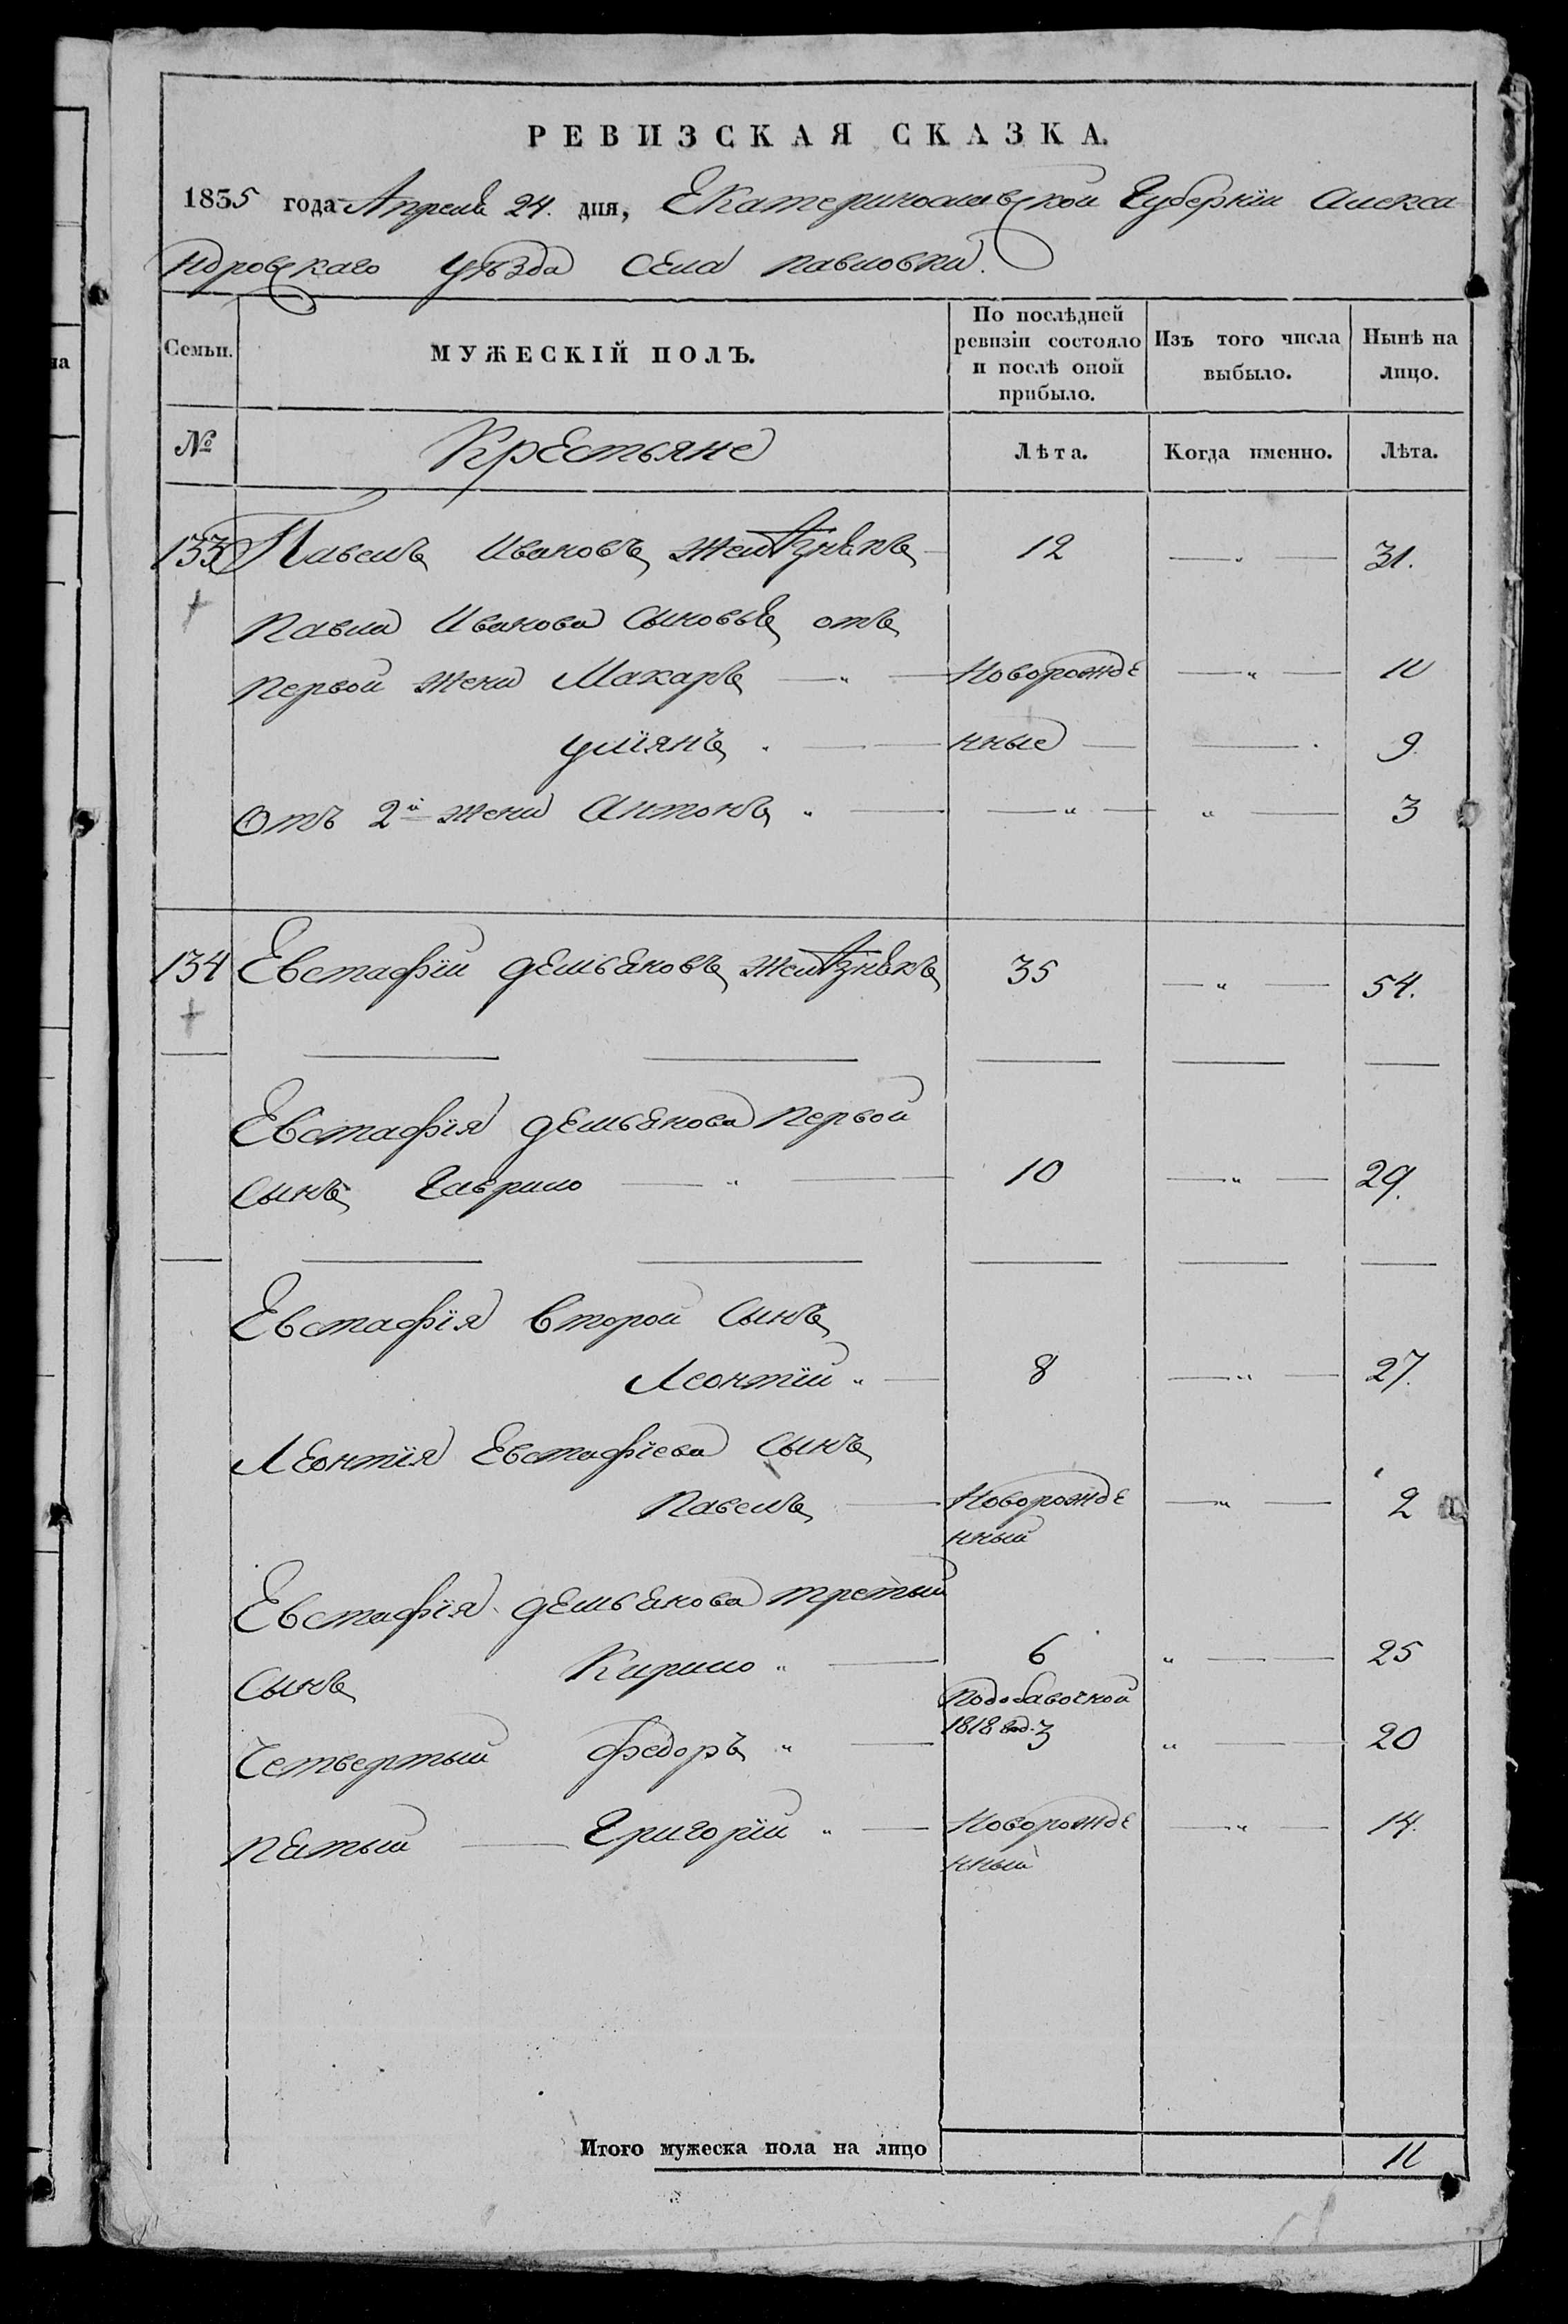 на
РЕВИЗСКАЯ СКАЗКА.
1835 года Апреля 24. дня, Екатеринославской Губернїи Алекса
ндровскаго уѣзда села павловки.
Семьи. МУЖЕСКІЙ ПОЛЪ. По послѣдней ревизіи состояло и послѣ оной прибыло. Изъ того числа выбыло. Нынѣ на лицо.
№ Крестьяне Лѣта. Когда именно. Лѣта.
133 Павелъ Ивановъ Желѣзнякъ 12 — „ — 31.
Павла Иванова сыновья отъ
первой жени Макаръ — „ — Новорожде — „ — 11
улїянъ „ — нные — — 9.
Отъ 2й жени Антонъ „ — — „ — „ — 3
134 Евстафїй демьяновъ желѣзнякъ 35 — „ — 54.
Евстафїя демьянова первой
сынъ Гаврило — „ — 10 — „ — 29.
Евстафїя второй сынъ
Леонтїй „ — 8 — „ — 27.
Леонтїя Евстафїева сынъ
Павелъ — Новорожде — „ — 2
нный
Евстафїя демьянова третый
сынъ Кирило „ — 6 „ — 25
Подобавочной
Четвертый федоръ „ — 1818 год. 3 „ — 20
пятый — Григорїй „ — Новорожде — „ — 14.
нный
Итого мужеска пола на лицо 11